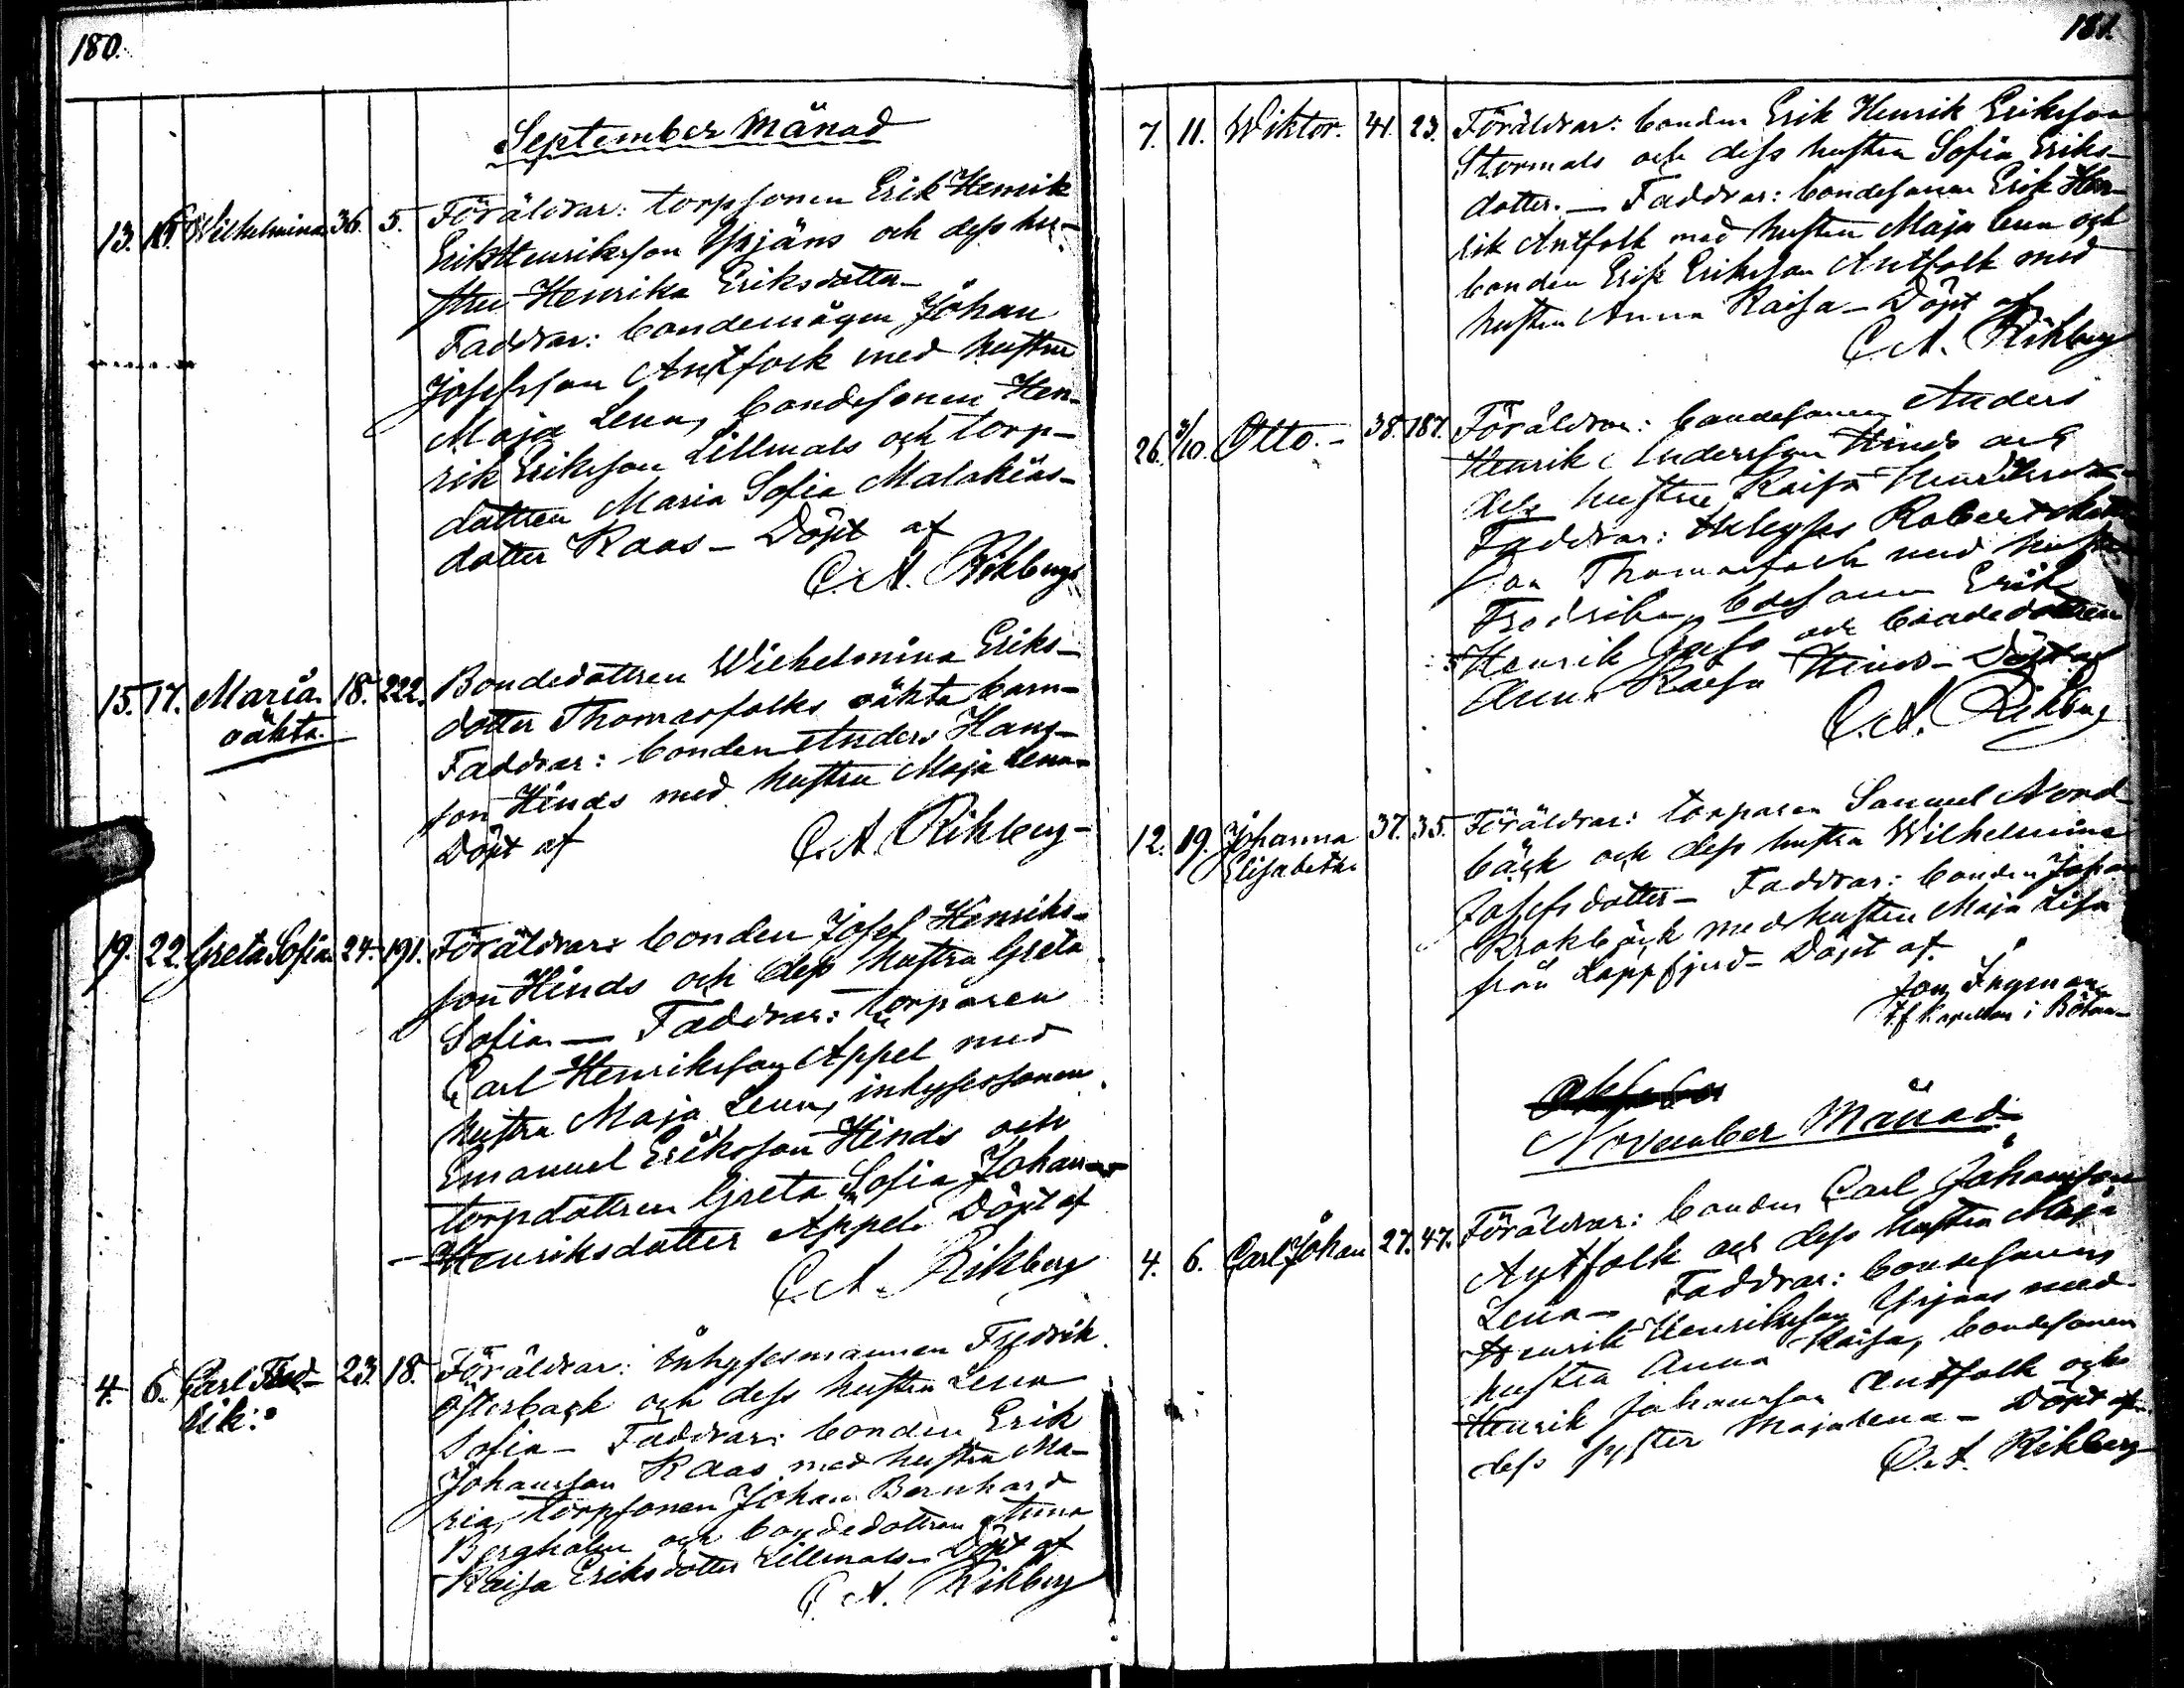 180.
September Månad
13. 16. Wilhelmina 36. 5. Föräldrar: torpsonen Erik Henrik
Erik Henriksson Yrjäns och dess hu-
stru Henrika Eriksdotter
Faddrar: bondemågen Johan
Josefsson Antfolk med hustru
Maja Lena, bondesonen Hen-
rik Eriksson Lillmals och torp-
dottren Maria Sofia Malakias-
dotter Kaas - Döpt af
C. A. Rikberg
15. 17. Maria 18. 222. Bondedottren Wilhelmina Eriks-
oäkta.
dotter Thomasfolks oäkta barn-
Faddrar: bonden Anders Hans-
son Hinds med hustru Maja Lena-
Döpt af
C. A. Rikberg-
19. 22. Greta Sofia 24. 191. Föräldrar: bonden Josef Henriks-
son Hinds och dess hustru Greta
Sofia - Faddrar: torparen
Carl Henriksson Appel med
hustru Maja Lena, inhysessonen
Emanuel Eriksson Hinds och
torpdottren Greta Sofia Johan-
Henriksdotter Appel. Döpt af
C. A. Rikberg
4. 6. Carl Fred- 23. 18. Föräldrar: Inhysesmannen Fredrik
rik.
Österback och dess hustru Lena
Sofia - Faddrar: bonden Erik
Johansson Kaas med hustru Ma-
ria, torpsonen Johan Bernhard
Bergholm och bondedottren Anna
Kaisa Eriksdotter Lillmals - Döpt af
C. A. Rikberg
181.
7. 11. Wiktor. 41. 23. Föräldrar: bonden Erik Henrik Eriksson
Stormals och dess hustru Sofia Eriks-
dotter. - Faddrar: bondesonen Erik Hen-
rik Antfolk med hustru Maja Lena och
bonden Erik Eriksson Antfolk med
hustru Anna Kaisa - Döpt af
C. A. Rikberg
26. /10. Otto. - 38. 187. Föräldrar: bondesonen Anders
Henrik Andersson Hinds och
dess hustru Kaisa
Faddrar: Robert
son Thomasfolk med hustru
Fredrika, bdesonen Erik
Henrik och bondedottren
Anna Kaisa Hinds - Döpt af
C. A. Rikberg
12. 19. Johanna 37. 35. Föräldrar: torparen Samuel Nord-
Elisabeth.
bäck och dess hustru Wilhelmina
Josefsdotter - Faddrar: bonden Johan
Krokbäck med hustru Maja Lisa
från Lappfjerd - Döpt af
Ingman
t.f. Kapellan i Bötom-
Oktober
November Månad
4. 6. Carl Johan 27. 47. Föräldrar: bonden Carl Johansson
Antfolk och dess hustru Maja
Lena - Faddrar: bondesonen
Henrik Henriksson Yrjäns med
hustru Anna Kaisa, bondesonen
Henrik Johansson Antfolk och
dess syster Maja Lena - Döpt af
C. A. Rikberg